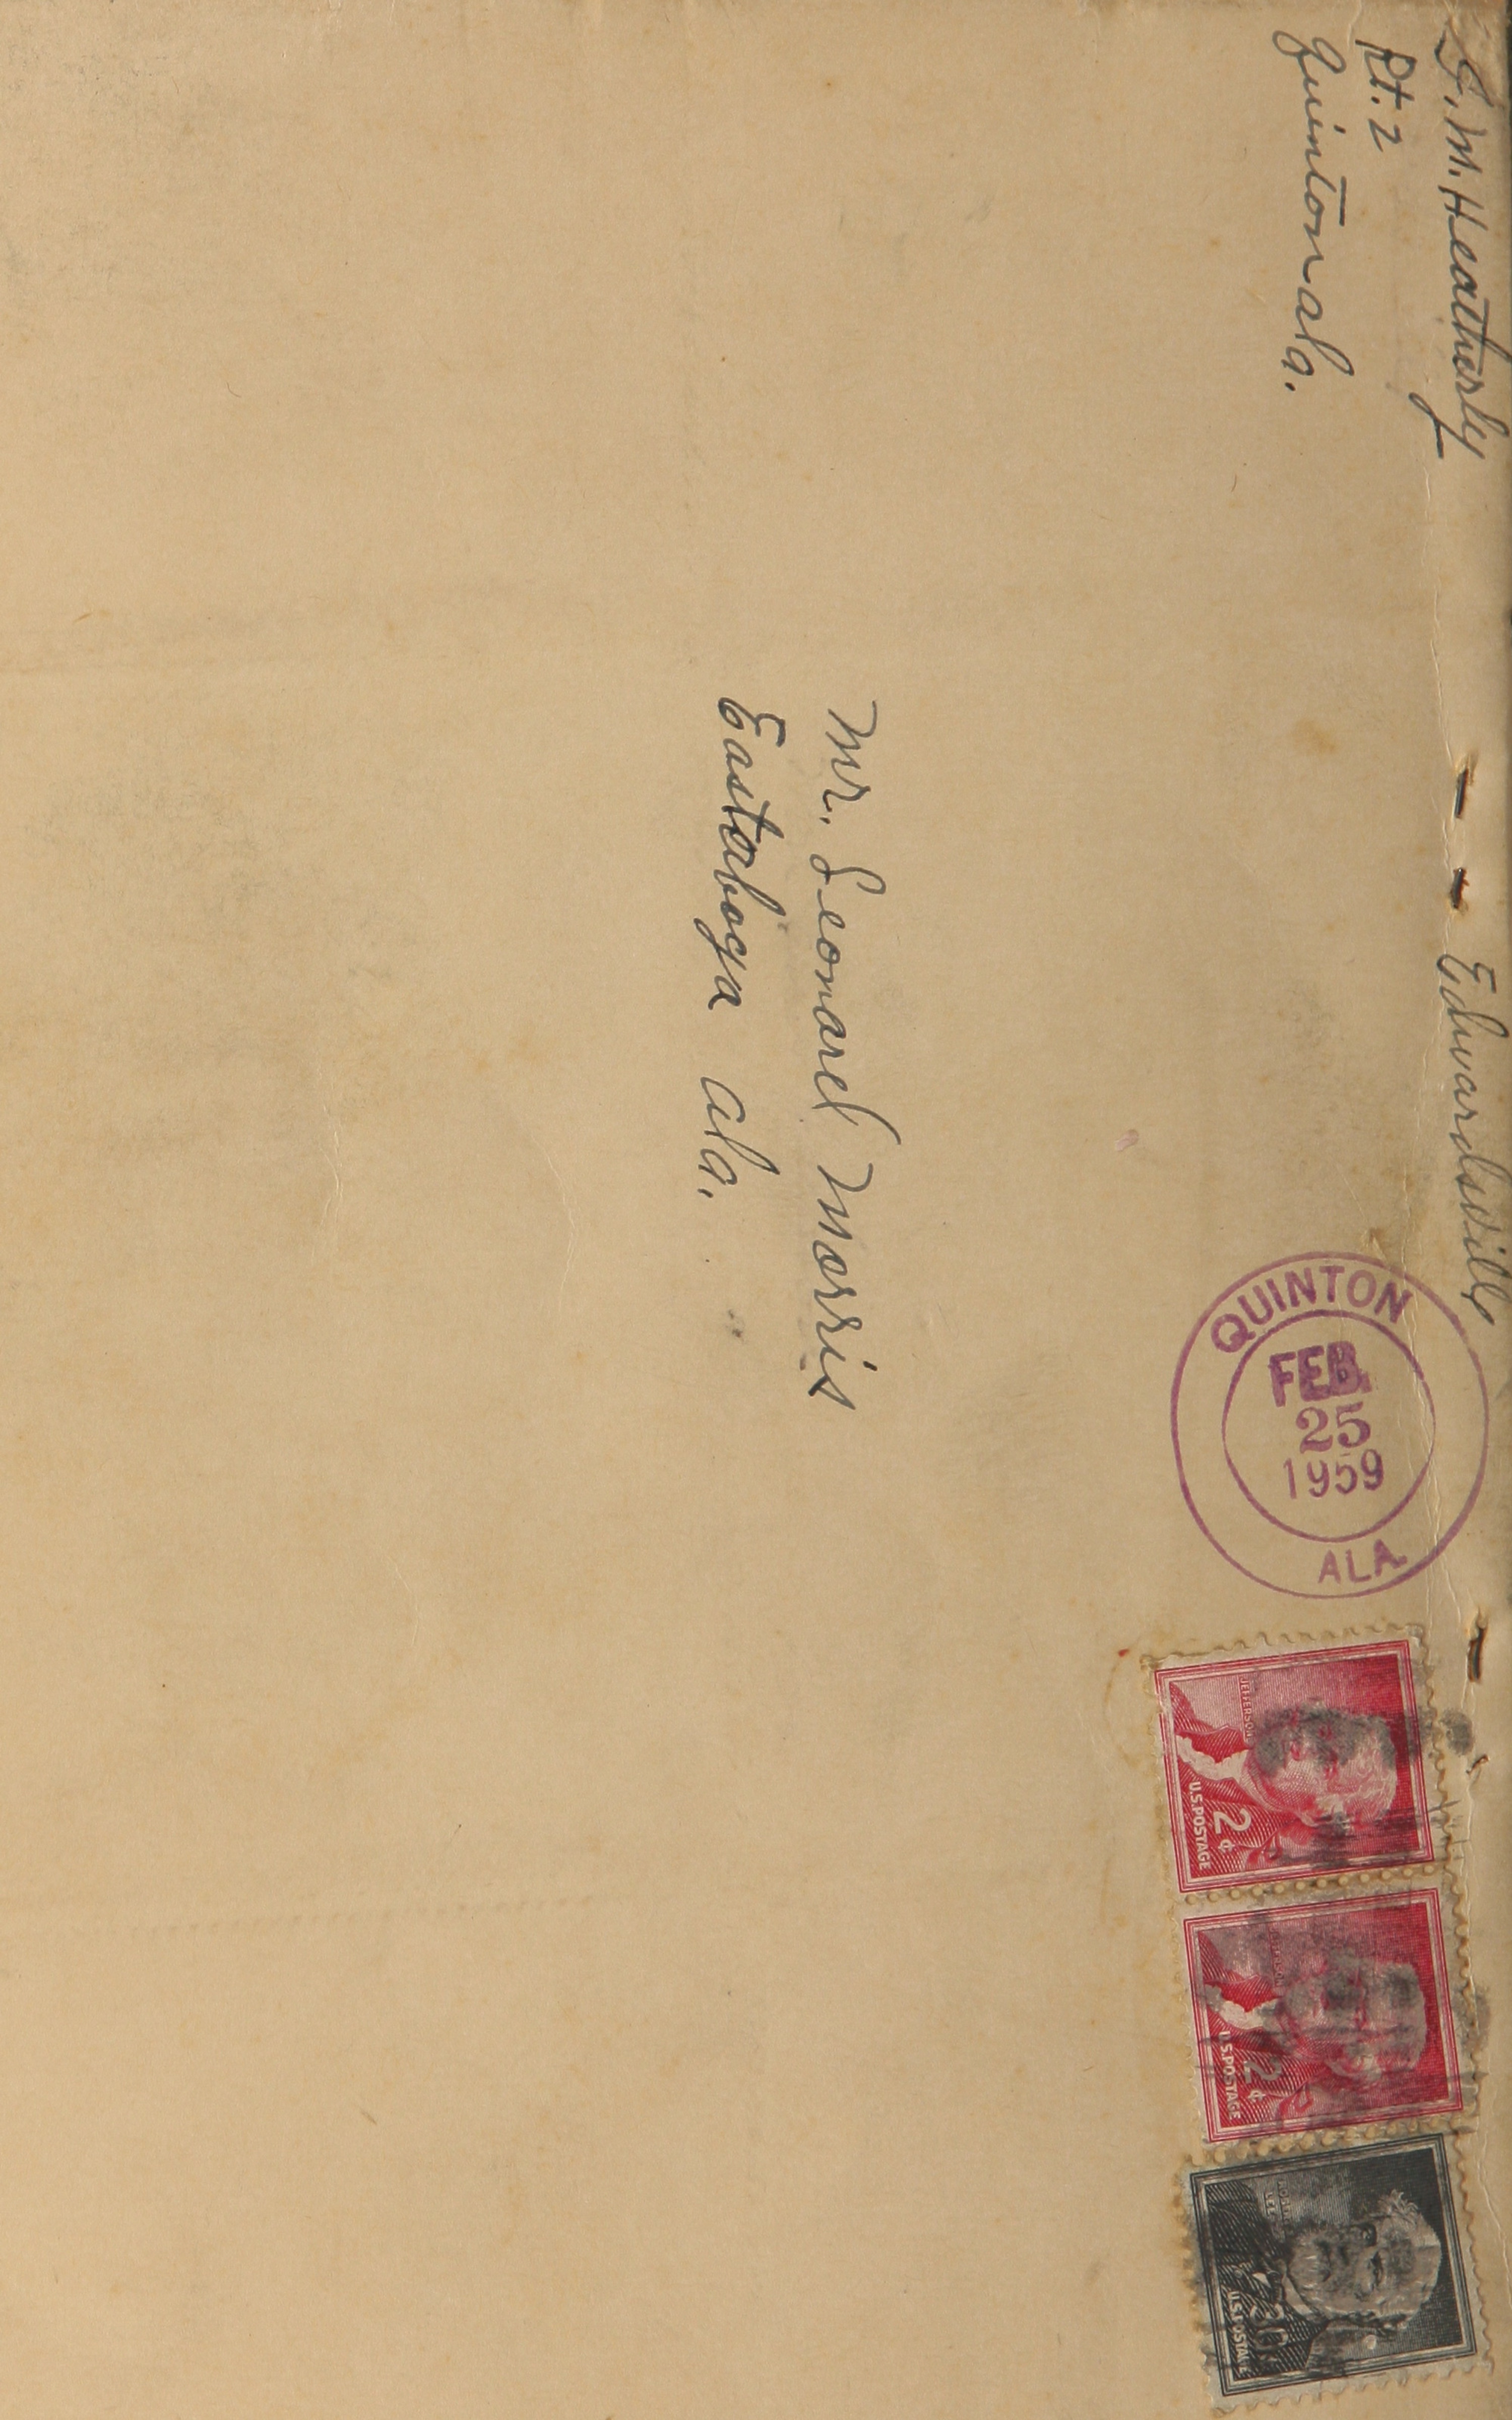 J. M. Heatherly
Rt. 2
Quinton ala.
Edwardsville
QUINTON
FEB.
25
1959
ALA.
JEFFERSON
2¢
U.S. POSTAGE
2¢
U.S. POSTAGE
LEE
30
U.S. POSTAGE
Mr. Leonard Morris
Eastaboga ala.